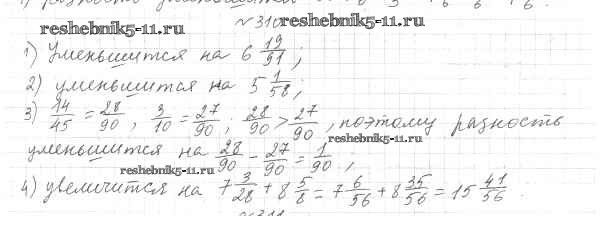 reshebnik5-11.ru
№310 reshebnik5-11.ru
1) Уменьшится на 6 19/91;
2) уменьшится на 5 1/58;
3) 14/45 = 28/90; 3/10 = 27/90; 28/90 > 27/90, поэтому разность
reshebnik5-11.ru
уменьшится на 28/90 - 27/90 = 1/90,
reshebnik5-11.ru
4) увеличится на 7 3/28 + 8 5/8 = 7 6/56 + 8 35/56 = 15 41/56.